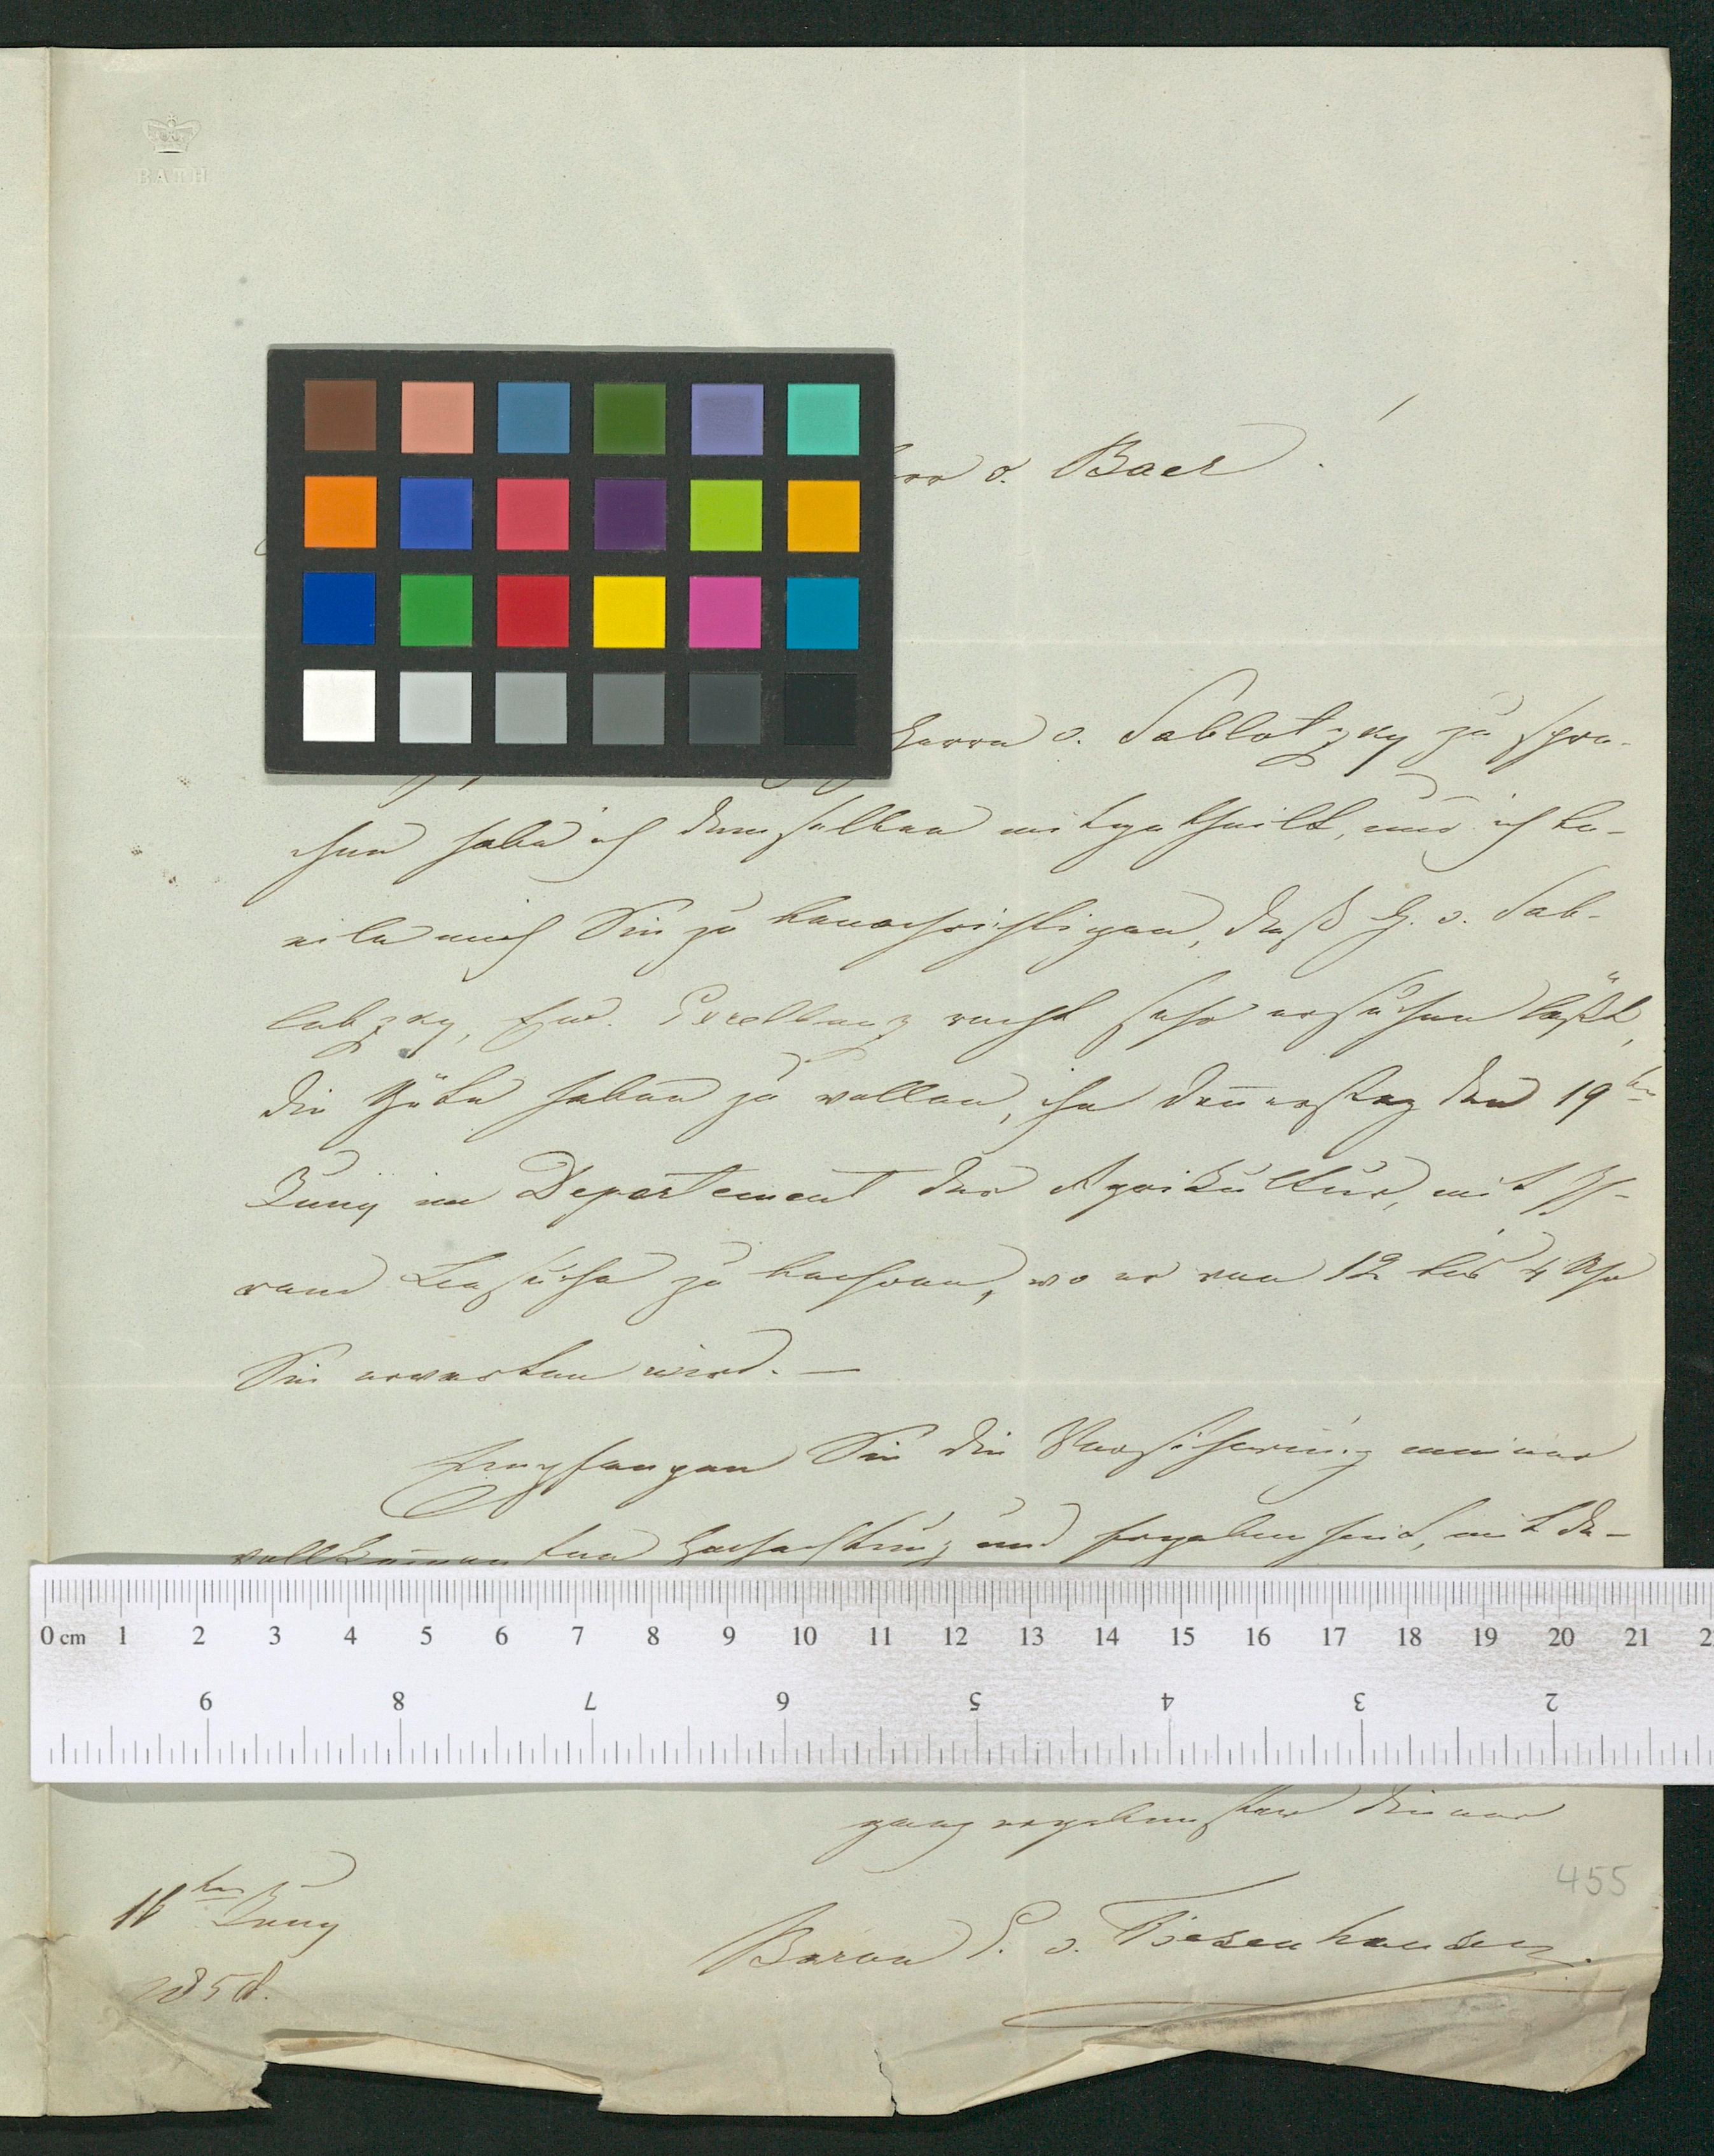 BATH
v. Baer
Herrn v. Sablotzky zu spre-
chen habe ich demselben mitgetheilt, und ich be-
eile mich Sie zu benachrichtigen, daß H. v. Sab-
lotzky, Ew. Excellenz recht sehr ersuchen läßt,
die Güte haben zu wollen, ihn Donnerstag den 19ten
Juny im Departement der Agrikultur, mit Ih-
rem Besuche zu beehren, wo er von 12 bis 4 Uhr
Sie erwarten wird. —
Empfangen Sie die Versicherung meiner
vollkommensten Hochachtung und Ergebenheit, mit de-
0 cm 1 2 3 4 5 6 7 8 9 10 11 12 13 14 15 16 17 18 19 20 21 2
9 8 7 6 5 4 3 2
ganz ergebenster Diener
455
Juny
Baron v. Tiesenhausen.